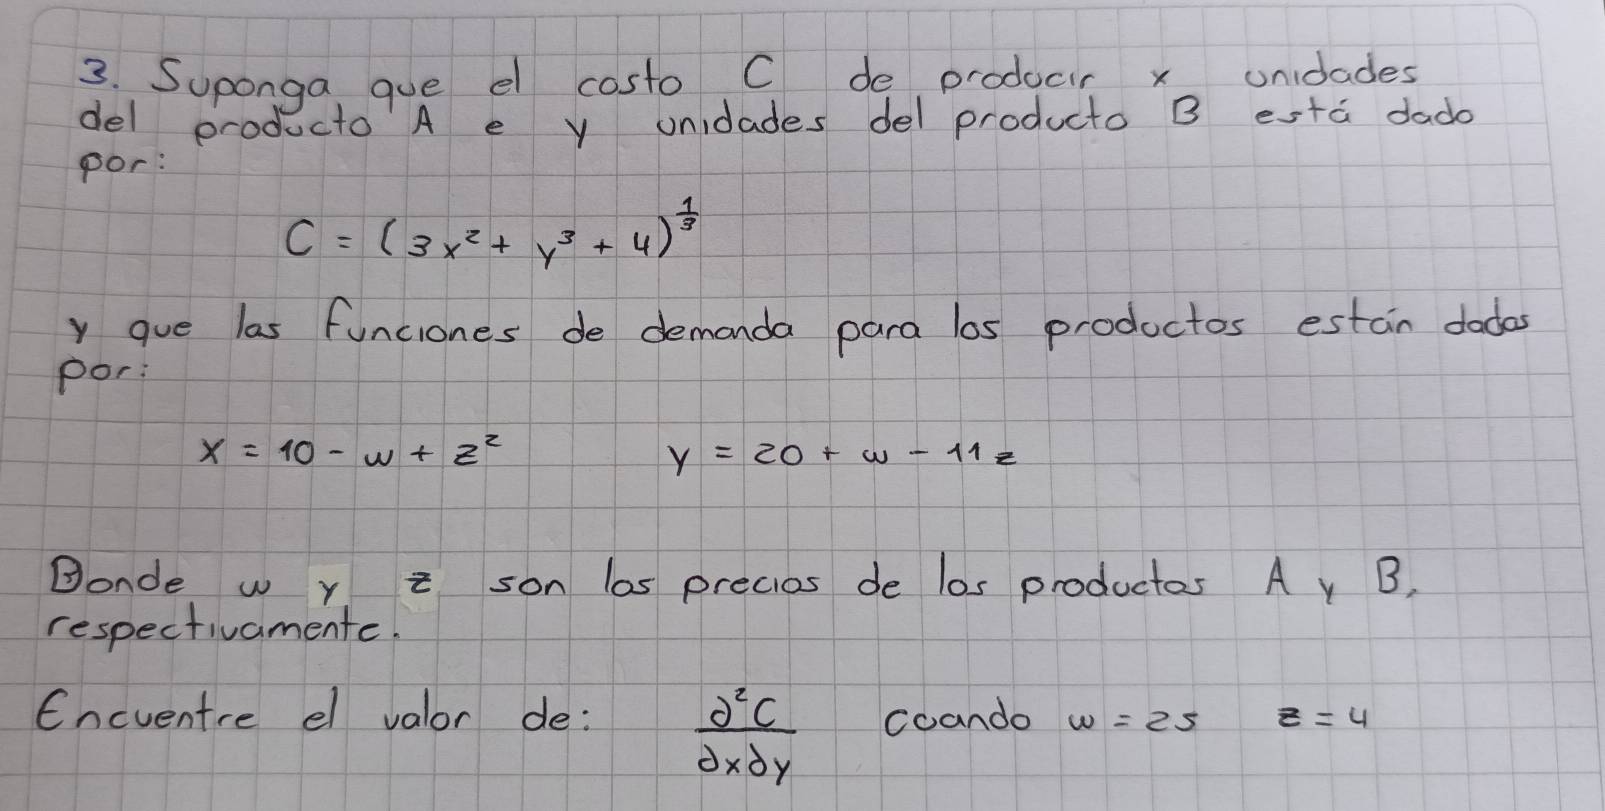 3. Suponga que el costo C de producir x unidades
del producto A e y unidades del producto B está dado
por:
C = (3x² + y³ + 4)^(1/3)
y que las funciones de demanda para los productos están dadas
por:
x = 10 - w + z² y = 20 + w - 11z
Donde w y z son los precios de los productos A y B,
respectivamente.
Encuentre el valor de: ∂²C/∂x∂y cuando w = 25 z = 4